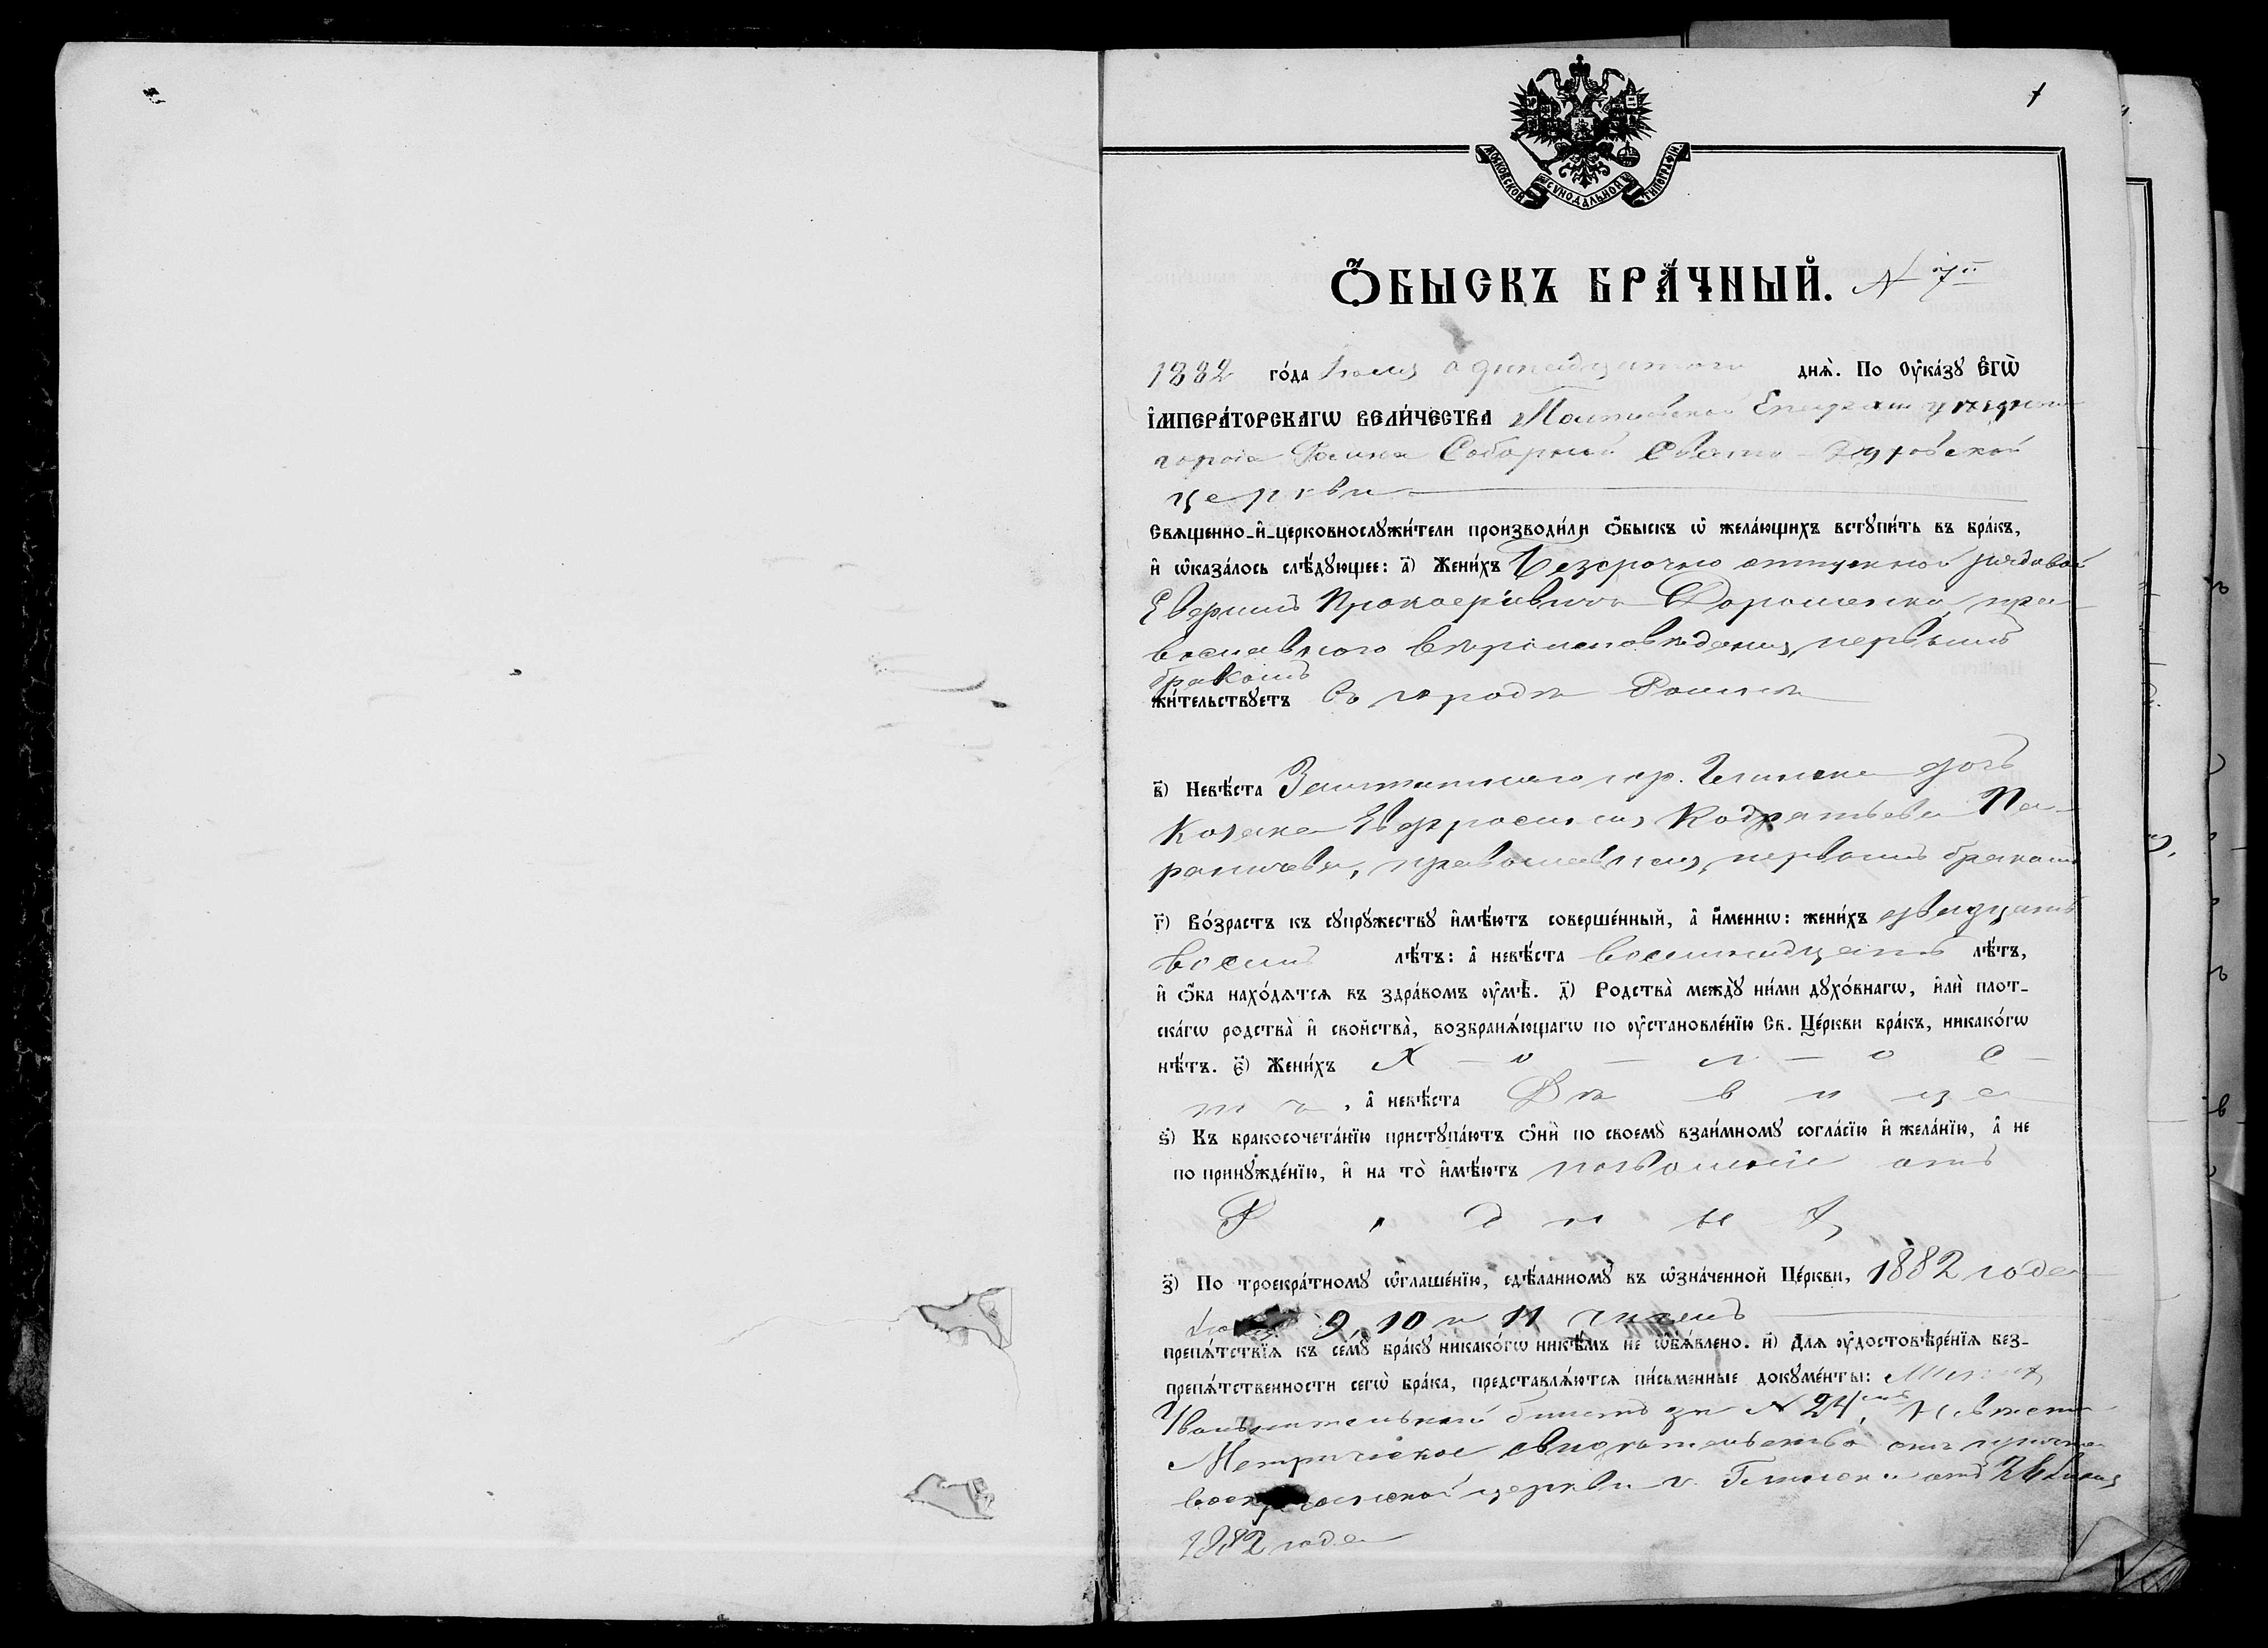 1
МОСКОВСКОЙ СѴНОДАЛЬНОЙ ТИПОГРАФІИ
Ѻ҆БЫСКЪ БРА́ЧНЫЙ. № 7й
1882 го́да Іюля одинадцатого днѧ̀. По Оу҆ка́зꙋ Е҆ГѠ̀
І҆МПЕРА́ТОРСКАГѠ ВЕЛИ́ЧЕСТВА Полтавской Епархіи уезднаго
города Ромна Соборной Свято-Духовской
церкви
Свѧщенно-и҆-церковнослꙋжи́тели производи́ли ѻ҆́быскъ ѡ҆ жела́ющихъ встꙋпи́ть въ бра́къ,
и҆ ѡ҆каза́лось слѣ́дꙋющее: а҃) Жени́хъ Безсрочно отпускной рядовой
Евфимъ Прокофіевичъ Дорошенко, пра-
вославного вѣроисповѣданія, первымъ
бракомъ
жи́тельствꙋетъ въ городѣ Ромнѣ
в҃) Невѣ́ста Заштатнаго гор. Глинска дочь
Козака Евфросинія Кодратьева Па-
, православная, первымъ бракомъ
г҃) Во́зрастъ къ сꙋпрꙋ́жествꙋ и҆мѣ́ютъ соверше́нный, а҆ и҆́меннѡ: жени́хъ двадцать
восемь лѣ́тъ: а҆ невѣ́ста восемнадцать лѣ́тъ,
и҆ ѻ҆́ба нахо́дѧтсѧ въ здра́вомъ оу҆мѣ̀. д҃) Родства̀ междꙋ̀ ни́ми дꙋхо́внагѡ, и҆лѝ плот-
ска́гѡ родства̀ и҆ свойства̀, возбранѧ́ющагѡ по оу҆становле́нїю Св. Це́ркви бра́къ, никако́гѡ
нѣ́тъ. е҃) Жени́хъ Х - о - л - о с -
т ъ, а҆ невѣ́ста Дѣ в и ца
ѕ҃) Къ бракосочета́нїю пристꙋпа́ютъ ѻ҆нѝ по своемꙋ̀ взаи́мномꙋ согла́сїю и҆ жела́нїю, а҆ не
по принꙋжде́нїю, и҆ на то̀ и҆мѣ́ютъ позволеніе отъ
Р о д н ы х
з҃) По троекра́тномꙋ ѡ҆глаше́нїю, сдѣ́ланномꙋ въ ѡ҆зна́ченной Це́ркви, 1882 года
9, 10 и 11 чиселъ
препѧ́тствїѧ къ семꙋ̀ бра́кꙋ никако́гѡ никѣ́мъ не ѡ҆б̾ѧ́влено. и҃) Длѧ оу҆достовѣре́нїѧ без-
препѧ́тственности сегѡ̀ бра́ка, представлѧ́ютсѧ пи́сьменные докꙋме́нты:
Увольнительный билетъ за № 24, Невѣсты
Метрическое свидѣтельство отъ причта
Воскресенской церкви г. Глинска отъ
1882 года